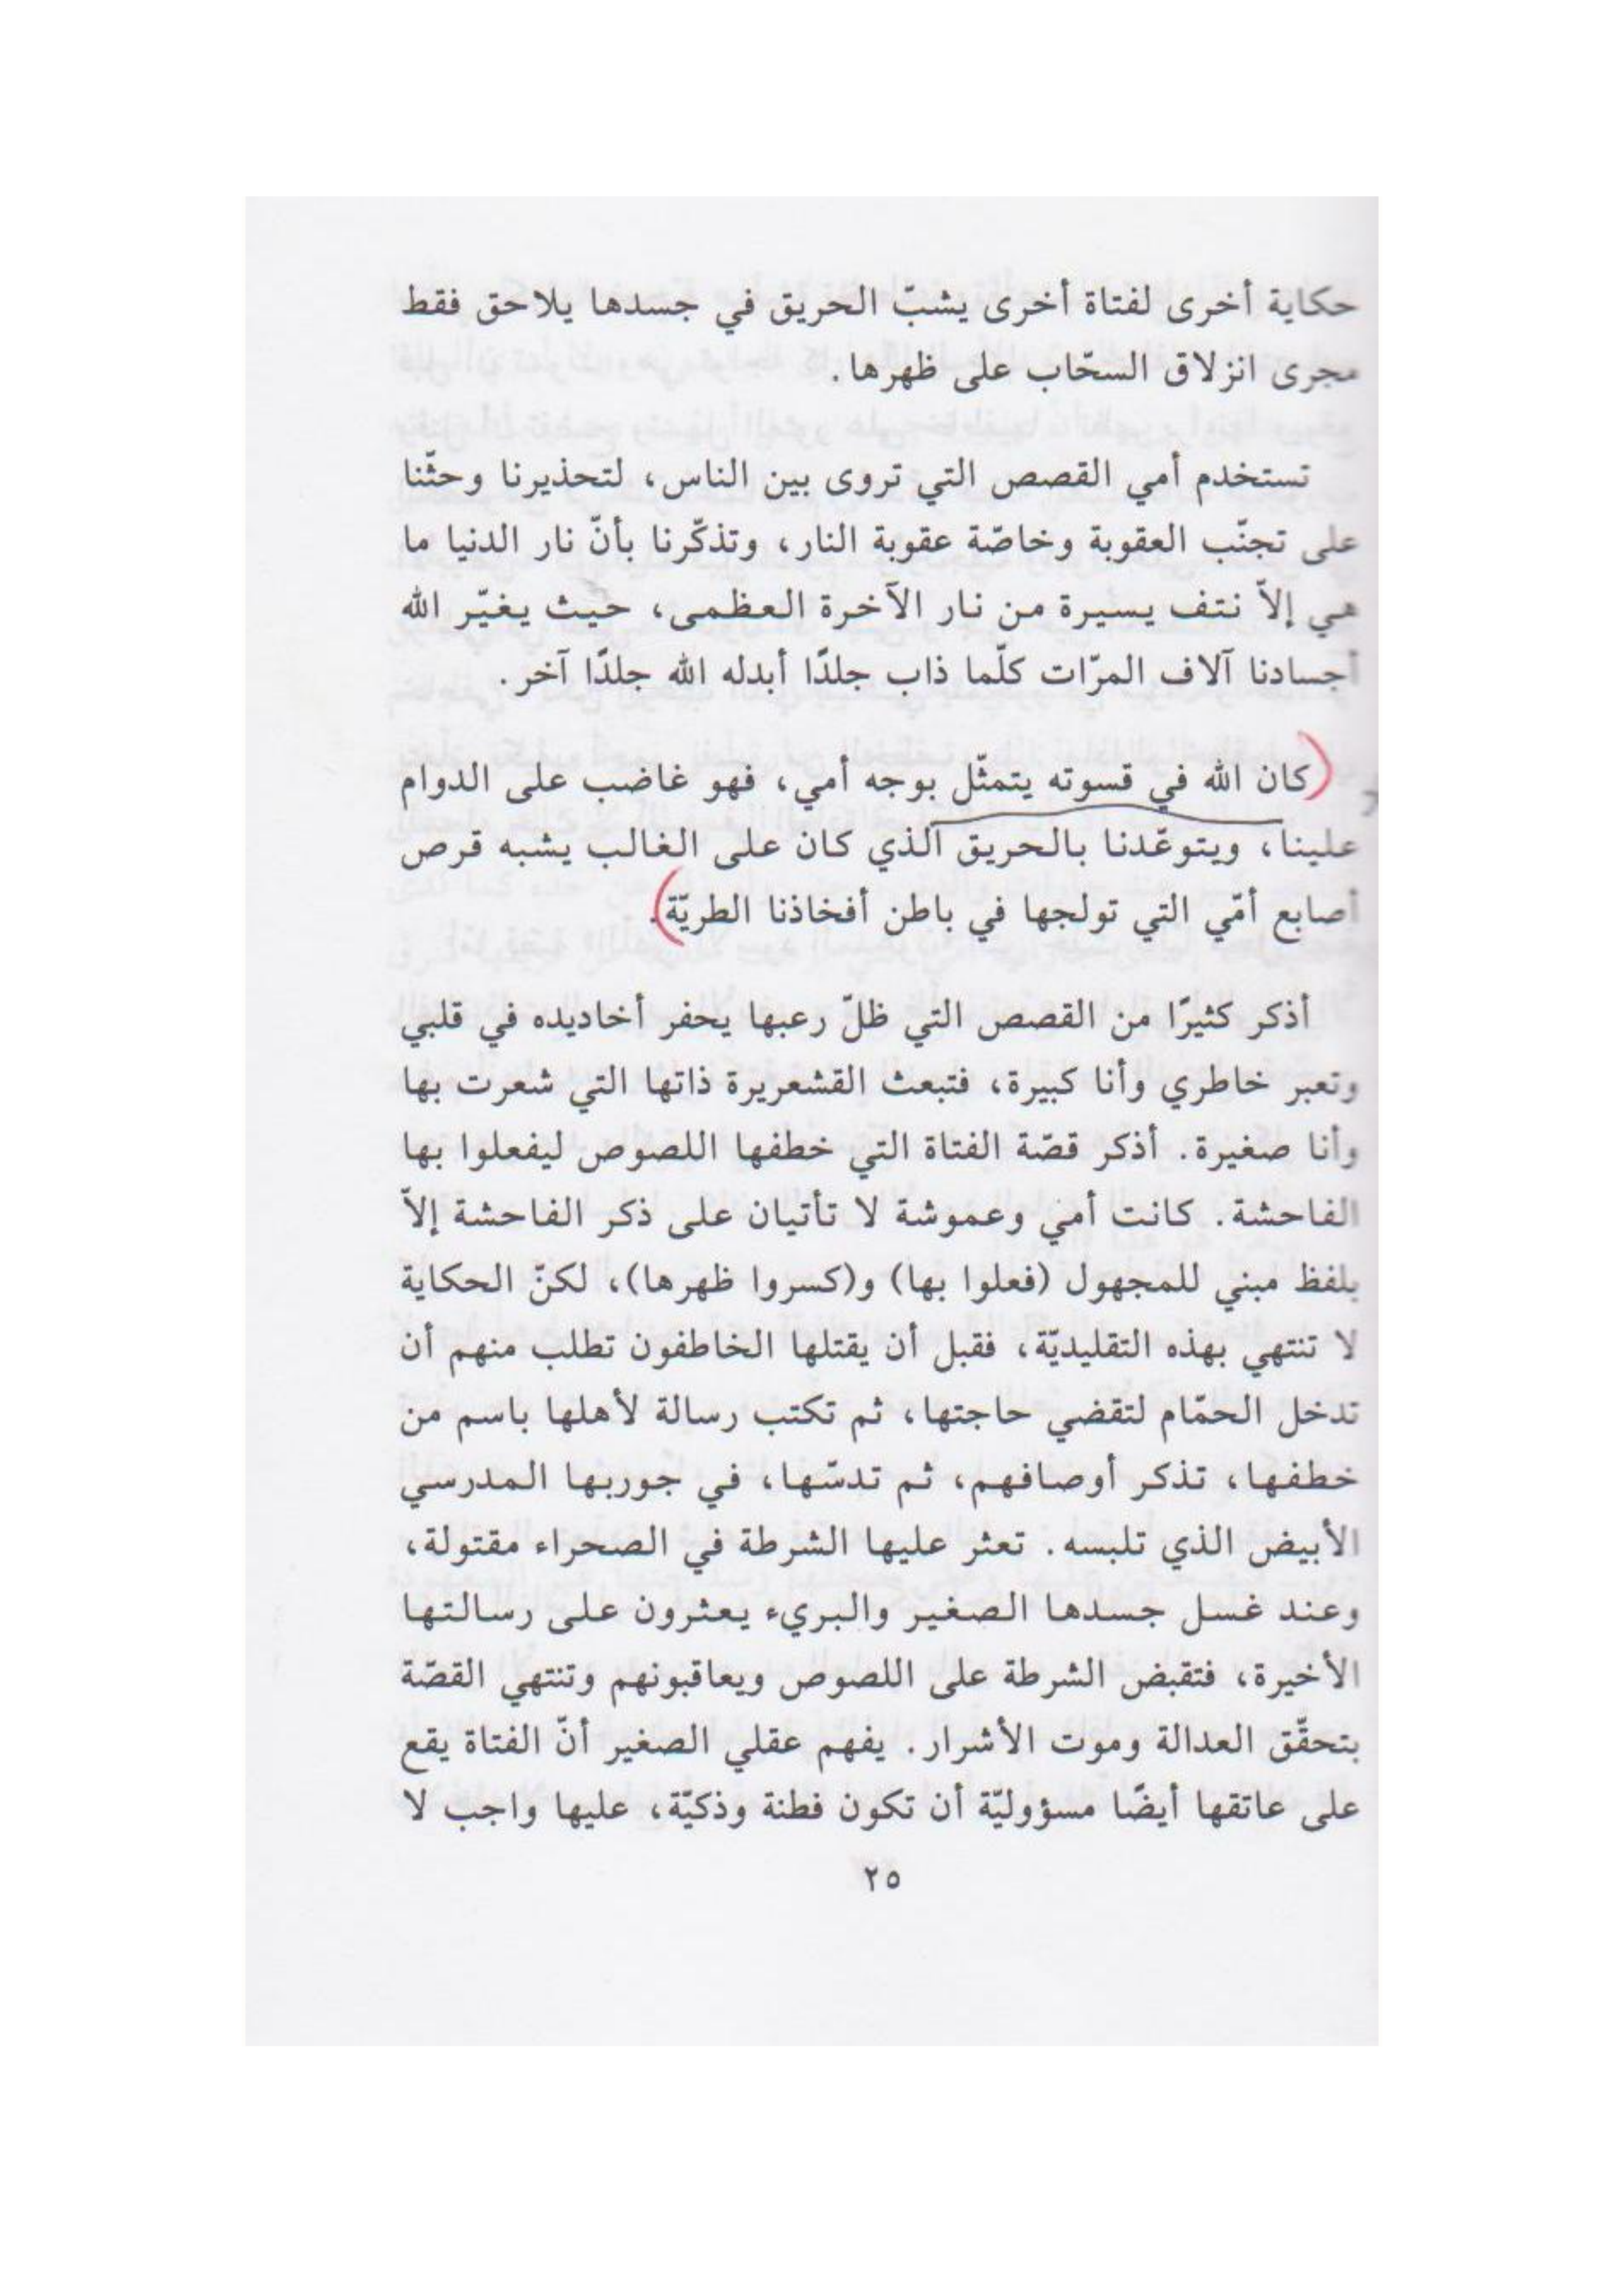 حكاية أخرى لفتاة أخرى يشبّ الحريق في جسدها يلاحق فقط
مجرى انزلاق السحّاب على ظهرها.
تستخدم أمي القصص التي تروى بين الناس، لتحذيرنا وحثّنا
على تجنّب العقوبة وخاصّة عقوبة النار، وتذكّرنا بأنّ نار الدنيا ما
هي إلاّ نتف يسيرة من نار الآخرة العظمى، حيث يغيّر الله
أجسادنا آلاف المرّات كلّما ذاب جلدًا أبدله الله جلدًا آخر.
(كان الله في قسوته يتمثّل بوجه أمي، فهو غاضب على الدوام
علينا، ويتوعّدنا بالحريق الذي كان على الغالب يشبه قرص
أصابع أمّي التي تولجها في باطن أفخاذنا الطريّة).
أذكر كثيرًا من القصص التي ظلّ رعبها يحفر أخاديده في قلبي
وتعبر خاطري وأنا كبيرة، فتبعث القشعريرة ذاتها التي شعرت بها
وأنا صغيرة. أذكر قصّة الفتاة التي خطفها اللصوص ليفعلوا بها
الفاحشة. كانت أمي وعموشة لا تأتيان على ذكر الفاحشة إلاّ
بلفظ مبني للمجهول (فعلوا بها) و(كسروا ظهرها)، لكنّ الحكاية
لا تنتهي بهذه التقليديّة، فقبل أن يقتلها الخاطفون تطلب منهم أن
تدخل الحمّام لتقضي حاجتها، ثم تكتب رسالة لأهلها باسم من
خطفها، تذكر أوصافهم، ثم تدسّها، في جوربها المدرسي
الأبيض الذي تلبسه. تعثر عليها الشرطة في الصحراء مقتولة،
وعند غسل جسدها الصغير والبريء يعثرون على رسالتها
الأخيرة، فتقبض الشرطة على اللصوص ويعاقبونهم وتنتهي القصّة
بتحقّق العدالة وموت الأشرار. يفهم عقلي الصغير أنّ الفتاة يقع
على عاتقها أيضًا مسؤوليّة أن تكون فطنة وذكيّة، عليها واجب لا
٢٥